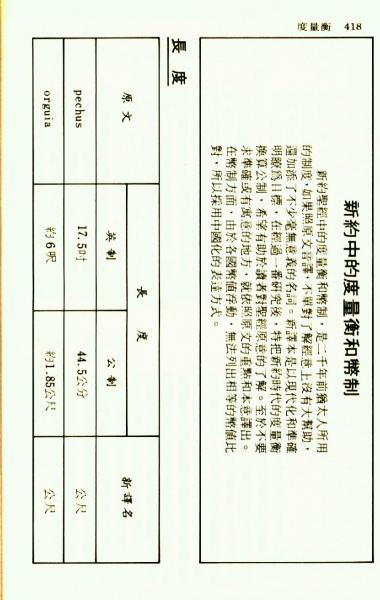 度量衡 418
新約中的度量衡和幣制
新約聖經中的度量衡和幣制，是二千年前猶太人所用
的制度，如果照原文音譯，不單對了解經意上沒有大幫助，
還加添了不少毫無意義的名詞。新譯本是以現代化和準確
明瞭爲目標，在經過一番研究後，特把新約時代的度量衡
換算公制，希望有助於讀者對聖經原意的了解。至於不要
求準確或有寓意的地方，就依照原文的重點和本意譯出。
在幣制方面，由於各國幣值浮動，無法列出相等的幣值比
對，所以採用中國化的表達方式。
長度
原文 長度 新譯名
英制 公制
pechus 17.5吋 44.5公分 公尺
orguia 約6呎 約1.85公尺 公尺